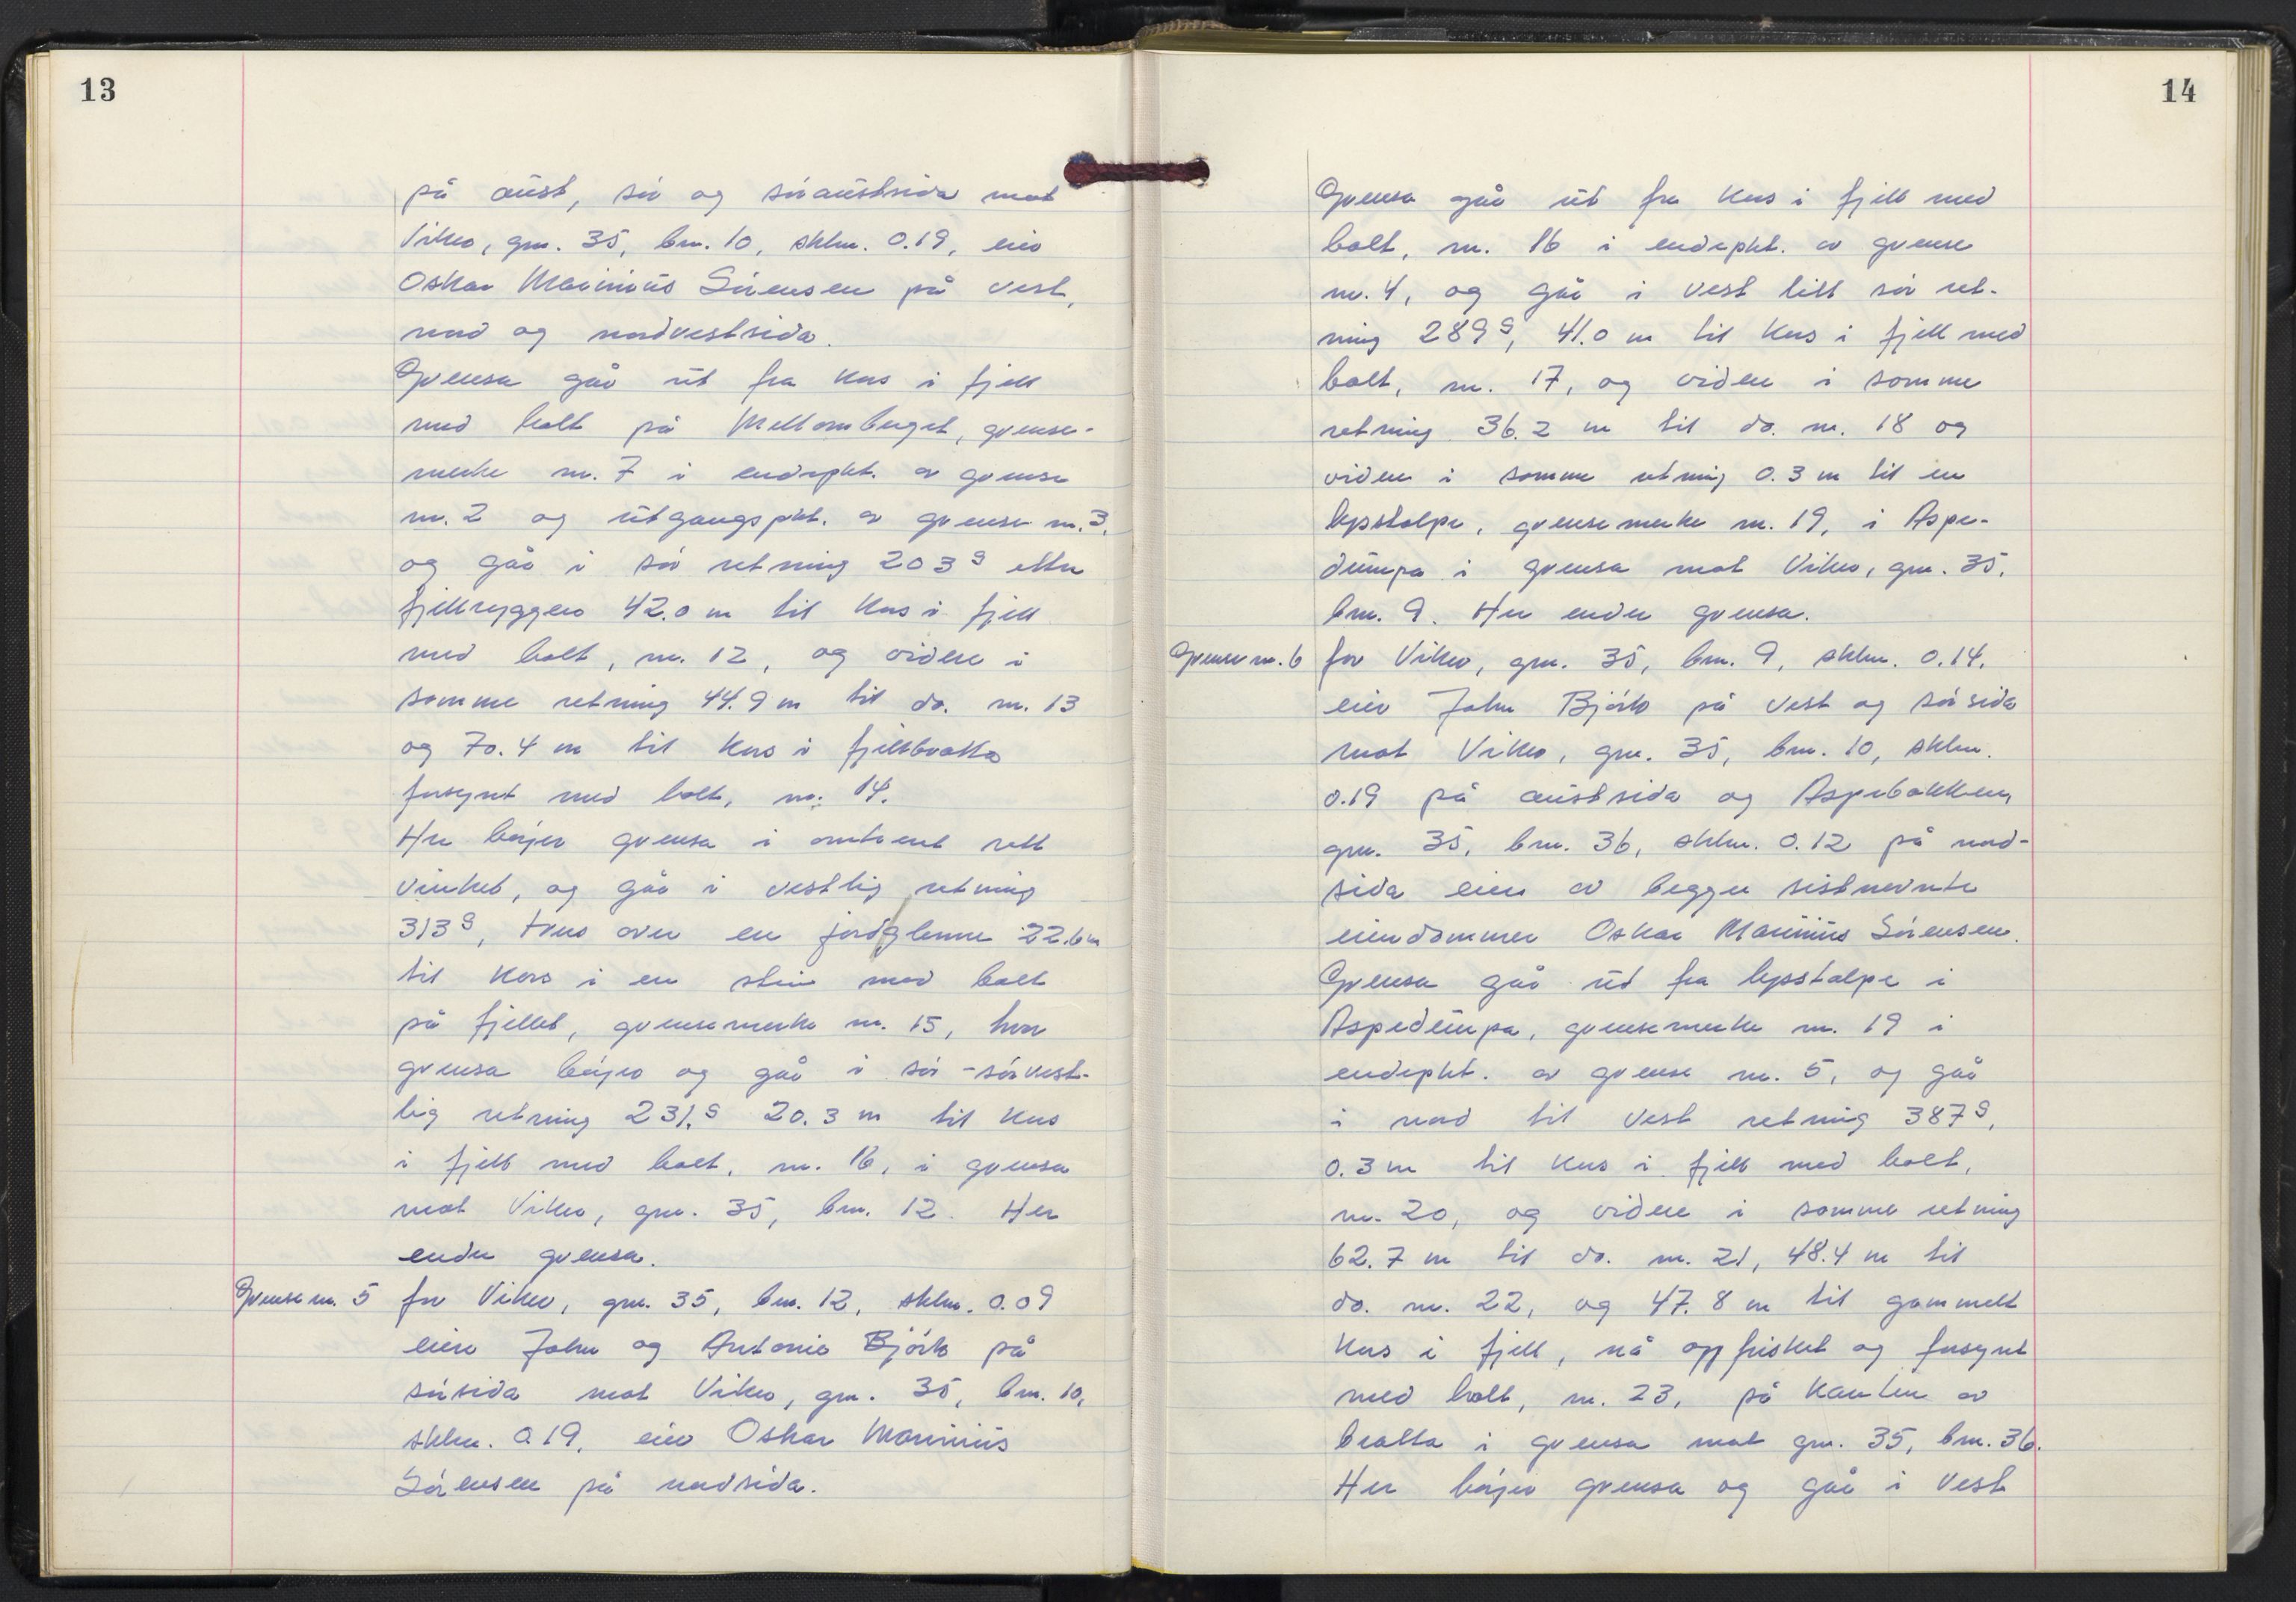 13
på aust, sør og søraustsida mot
Viken, gnr. 35, bnr. 10, sklm. 0.19, eier
Oskar Marinius Sørensen på vest,
nord og nordvestsida.
Grensa går ut fra kors i fjell
med bolt på Mellomberget, grense-
merke nr. 7 i endepkt. av grense
nr. 2 og utgangspkt. av grense nr. 3,
og går i sør retning 203g etter
fjellryggen 42.0 m til kors i fjell
med bolt, nr. 12, og videre i
samme retning 44.9 m til do. nr. 13
og 70.4 m til kors i fjellbratta
forsynt med bolt, nr. 14.
Her bøyer grensa i omtrent rett
vinkel, og går i vestlig retning
313g, tvers over en jordglenne 22.6 m
til kors i en stein med bolt
på fjellet, grensemerke nr. 15, hvor
grensa bøyer og går i sør-sørvest-
lig retning 231.g 20.3 m til kors
i fjell med bolt, nr. 16, i grensa
mot Viken, gnr. 35, bnr. 12. Her
ender grensa.
Grense nr. 5 for Viken, gnr. 35, bnr. 12, sklm. 0.09
eiere John og Antonie Bjørk på
sørsida mot Viken, gnr. 35, bnr. 10,
sklm. 0.19, eier Oskar Marinius
Sørensen på nordsida.
14
Grensa går ut fra kors i fjell med
bolt, nr. 16 i endepkt. av grense
nr. 4, og går i vest litt sør ret-
ning 289g, 41.0 m til kors i fjell med
bolt, nr. 17, og videre i samme
retning 36.2 m til do. nr. 18 og
videre i samme retning 0.3 m til en
lysstolpe, grensemerke nr. 19, i Aspe-
dumpa i grensa mot Viken, gnr. 35,
bnr. 9. Her ender grensa.
Grense nr. 6 for Viken, gnr. 35, bnr. 9, sklm. 0.14,
eier John Bjørk på vest og sørsida
mot Viken, gnr. 35, bnr. 10, sklm.
0.19 på austsida og Aspebakken,
gnr. 35, bnr. 36, sklm. 0.12 på nord-
sida eier av begge sistnevnte
eiendommer Oskar Marinius Sørensen.
Grensa går ut fra lysstolpe i
Aspedumpa, grensemerke nr. 19 i
endepkt. av grense nr. 5, og går
i nord til vest retning 387g,
0.3 m til kors i fjell med bolt,
nr. 20, og videre i samme retning
62.7 m til do. nr. 21, 48.4 m til
do. nr. 22, og 47.8 m til gammelt
kors i fjell, nå oppfrisket og forsynt
med bolt, nr. 23, på kanten av
bratta i grensa mot gnr. 35, bnr. 36.
Her bøyer grensa og går i vest